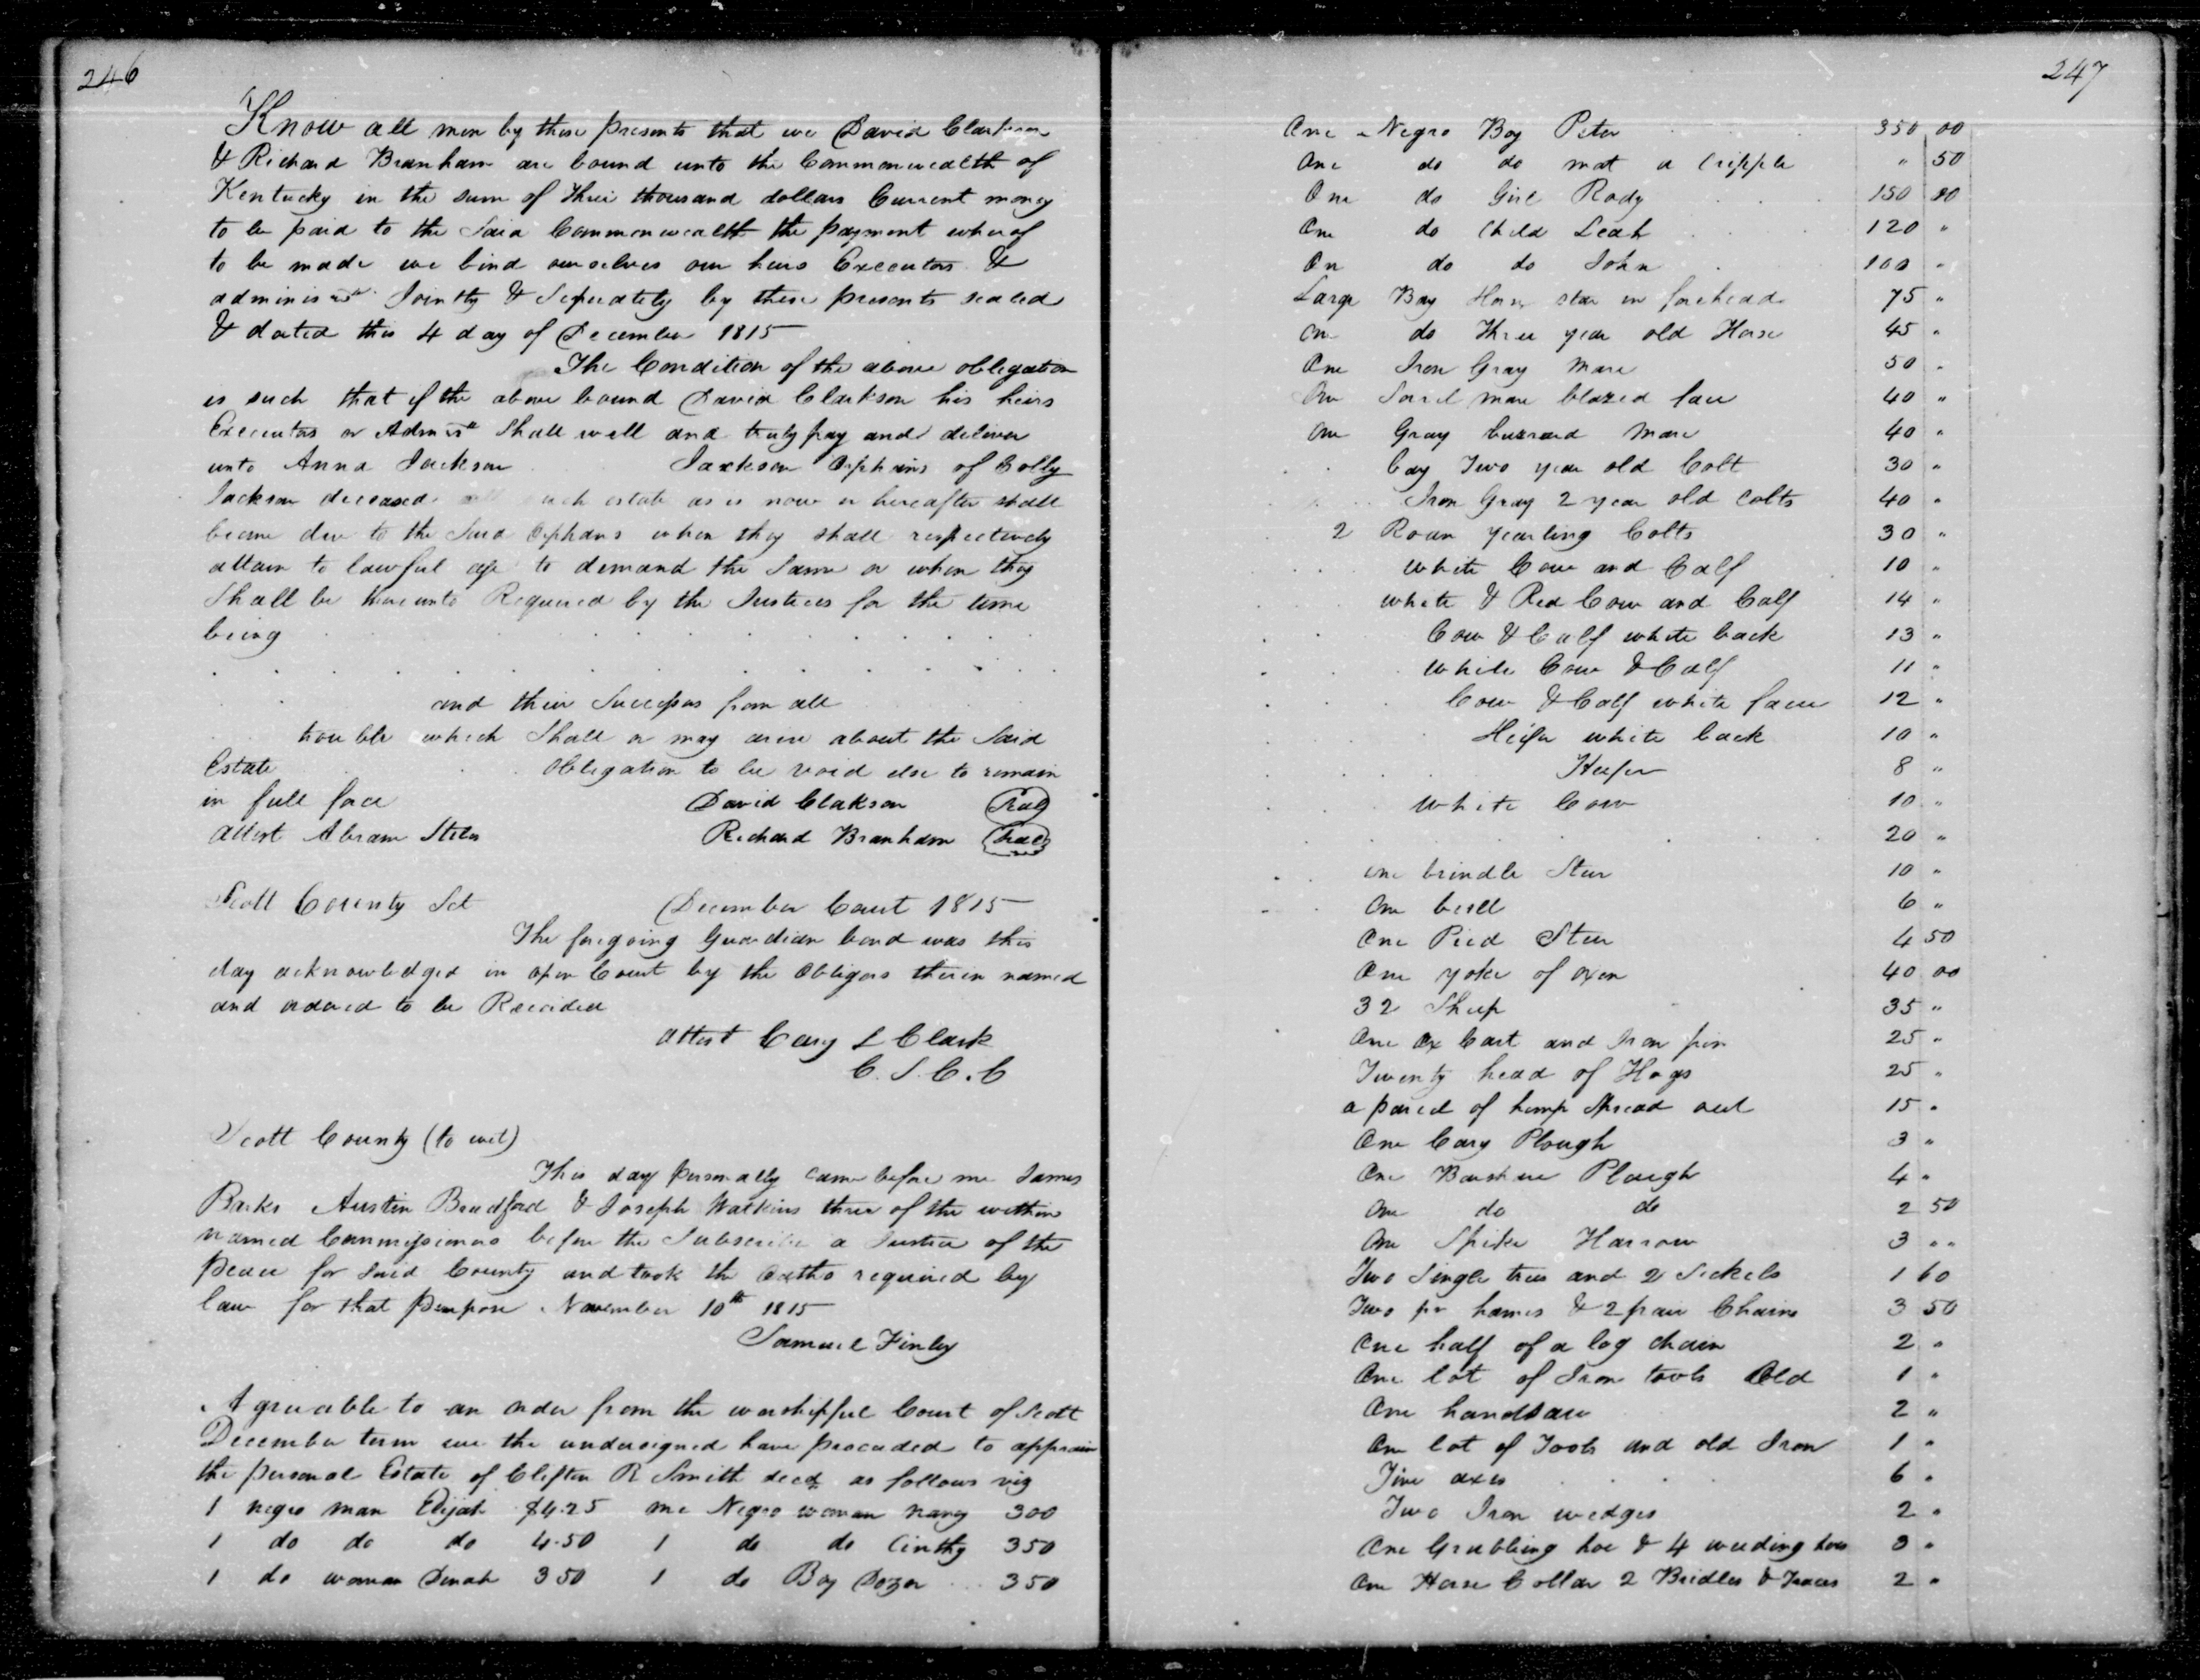 246
Know all men by these presents that we David Clarkson
& Richard Branham are bound unto the Commonwealth of
Kentucky in the sum of three thousand dollars Current money
to be paid to the Said Commonwealth the payment wherof
to be made we bind ourselves our heirs Executors &
Jointly & Seperately by these presents sealed
& dated this 4 day of December 1815
The Condition of the above obligation
is such that if the above bound David Clarkson his heirs
Executors or Shall well and truly pay and deliver
unto Anna Jackson Jackson Orphans of Colby
Jackson deceased all such estate as is now or hereafter shall
become due to the Said Orphans when they shall respectively
attain to lawful age to demand the Same or when they
Shall be thereunto Required by the Justices for the time
being
and their Successors from all
trouble which Shall or may arise about the Said
Estate Obligation to be void else to remain
in full force David Clakson (Seal)
attest Abram Richard Branham (Seal)
Scott County Sct December Court 1815
The foregoing Guardian bond was this
day acknowledged in open Court by the Obligors therein named
and ordered to be Recorded
attest Cary L Clark
C.S.C.C
Scott County (to wit)
This day personally came before me James
Parks Austin Bradford & Joseph Watkins three of the within
named Commissioners before the Subscriber a Justice of the
peace for said County and took the Oaths required by
law for that purpose November 10th 1815
Samuel Finley
Agreeable to an order from the worshipful Court of Scott
December term we the undersigned have proceeded to appraise
the personal Estate of Clifton R Smith decd as follows viz
1 negro man Elijah $4.25 one Negro woman nancy 300
1 do do do 4.50 1 do do Cinthy 350
1 do woman Dinah 350 1 do Boy Dozer 350
247
One Negro Boy Peter 350 00
One do do mat a Cripple " 50
One do Girl Rody 150 00
One do Child Leah 120 "
On do do John 100 "
Large Bay Horse star in forehead 75 "
On do Three year old Horse 45 "
One Iron Gray Mare 50 "
One Sorrel mare blazed face 40 "
One Gray buzzard Mare 40 "
bay Two year old Colt 30 "
Iron Gray 2 year old colts 40 "
2 Roan yearling Colts 30 "
White Cow and Calf 10 "
white & Red Cow and Calf 14 "
Cow & Calf white back 13 "
White Cow & Calf 11 "
Cow & Calf white face 12 "
Heifer white back 10 "
Heifer 8 "
White Cow 10 "
20 "
one brindle Steer 10 "
One bull 6 "
One Pied Steer 4 50
One yoke of oxen 40 00
32 Sheep 35 "
One Ox Cart and Iron pin 25 "
Twenty head of Hogs 25 "
a parcel of hemp Spread out 15 "
One Cary Plough 3 "
One Barshare Plough 4 "
One do do 2 50
One Spike Harrow 3 " "
Two Single trees and 2 Sickels 1 60
Two pr hames & 2 pair Chains 3 50
One half of a log chain 2 "
One lot of Iron tools Old 1 "
One handsaw 2 "
One lot of Tools and old Iron 1 "
Five axes 6 "
Two Iron wedges 2 "
One Grubbing hoe & 4 weeding hoes 3 "
One Horse Collar 2 Bridles & Traces 2 "